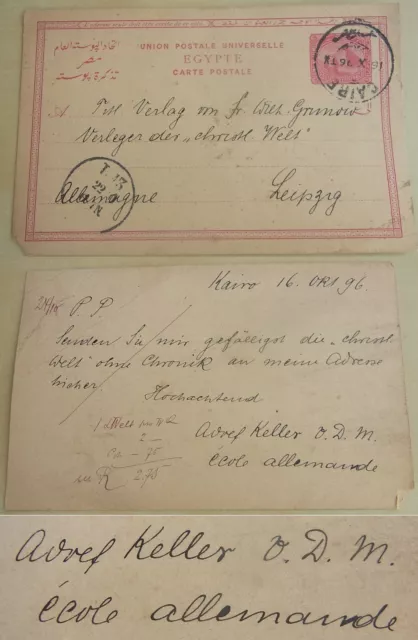 اتحاد البوستة العام
مصر
تذكرة بوستة
UNION POSTALE UNIVERSELLE
EGYPTE
CARTE POSTALE
CAIRE
16 X 96
An Titl. Verlag von Fr. Wilh. Grunow
Verleger der „christl. Welt"
Allemagne Leipzig
Kairo 16. Okt 96.
P. P.
Senden Sie mir gefälligst die „christl
Welt" ohne Chronik an meine Adresse
hieher.
Hochachtend
2 —
75
2.75
Adolf Keller V. D. M.
école allemande
Adolf Keller V. D. M.
école allemande